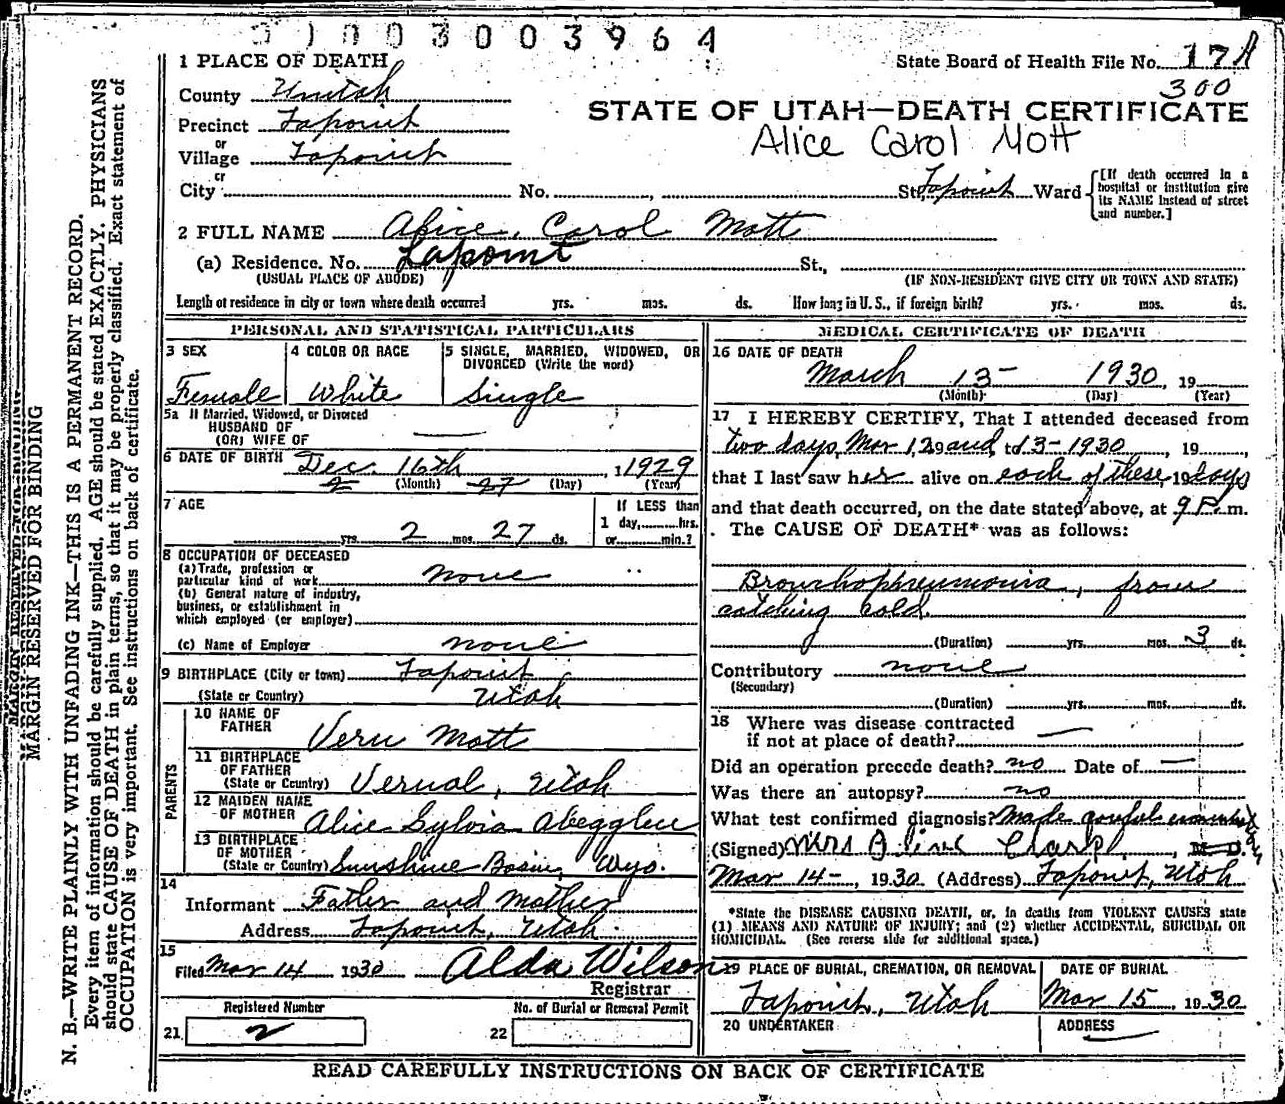 01003003964
1 PLACE OF DEATH
State Board of Health File No. 17A
300
County Unitah
STATE OF UTAH—DEATH CERTIFICATE
Precinct Lapoint
Alice Carol Mott
or
Village Lapoint
or
City No. , St. Lapoint Ward
[If death occurred in a hospital or institution give its NAME instead of street and number.]
2 FULL NAME Alice, Carol Mott
(a) Residence. No. Lapoint St.,
(USUAL PLACE OF ABODE) (IF NON-RESIDENT GIVE CITY OR TOWN AND STATE)
Length of residence in city or town where death occurred yrs. mos. ds. How long in U.S., if foreign birth? yrs. mos. ds.
PERSONAL AND STATISTICAL PARTICULARS
3 SEX
Female
4 COLOR OR RACE
White
5 SINGLE, MARRIED, WIDOWED, OR
DIVORCED (Write the word)
Single
5a If Married, Widowed, or Divorced
HUSBAND OF
(OR) WIFE OF
6 DATE OF BIRTH Dec. 16th, 1929
2 (Month) 27 (Day) (Year)
7 AGE
yrs. 2 mos. 27 ds.
If LESS than
1 day, hrs.
or min.?
8 OCCUPATION OF DECEASED
(a) Trade, profession or
particular kind of work none
(b) General nature of industry,
business, or establishment in
which employed (or employer)
(c) Name of Employer none
9 BIRTHPLACE (City or town) Lapoint
(State or Country) Utah
PARENTS
10 NAME OF
FATHER Vern Mott
11 BIRTHPLACE
OF FATHER
(State or Country) Vernal, Utah
12 MAIDEN NAME
OF MOTHER Alice Sylvia Abegglen
13 BIRTHPLACE
OF MOTHER
(State or Country) Sunshine Basin, Wyo.
14
Informant Father and Mother
Address Lapoint, Utah.
15
Filed Mar 14 1930 Alda Wilson
Registrar
Registered Number
21 2
No. of Burial or Removal Permit
22
MEDICAL CERTIFICATE OF DEATH
16 DATE OF DEATH
March 13- 1930, 19
(Month) (Day) (Year)
17 I HEREBY CERTIFY, That I attended deceased from
two days, Mar 12 and, to 13-1930, 19
that I last saw her alive on each of these, 19 days
and that death occurred, on the date stated above, at 9 P. m.
The CAUSE OF DEATH* was as follows:
Bronchopneumonia, from
catching cold.
(Duration) yrs. mos. 3 ds.
Contributory none
(Secondary)
(Duration) yrs. mos. ds.
18 Where was disease contracted
if not at place of death? —
Did an operation precede death? no Date of —
Was there an autopsy? no
What test confirmed diagnosis? Made
(Signed) Mrs Clark, M. D.
Mar 14-, 1930 (Address) Lapoint, Utah
*State the DISEASE CAUSING DEATH, or, in deaths from VIOLENT CAUSES state
(1) MEANS AND NATURE OF INJURY; and (2) whether ACCIDENTAL, SUICIDAL OR
HOMICIDAL. (See reverse side for additional space.)
19 PLACE OF BURIAL, CREMATION, OR REMOVAL
Lapoint, Utah
DATE OF BURIAL
Mar 15, 1930
20 UNDERTAKER
ADDRESS
READ CAREFULLY INSTRUCTIONS ON BACK OF CERTIFICATE
MARGIN RESERVED FOR BINDING
N. B.—WRITE PLAINLY WITH UNFADING INK—THIS IS A PERMANENT RECORD.
Every item of information should be carefully supplied. AGE should be stated EXACTLY. PHYSICIANS
should state CAUSE OF DEATH in plain terms, so that it may be properly classified. Exact statement of
OCCUPATION is very important. See instructions on back of certificate.